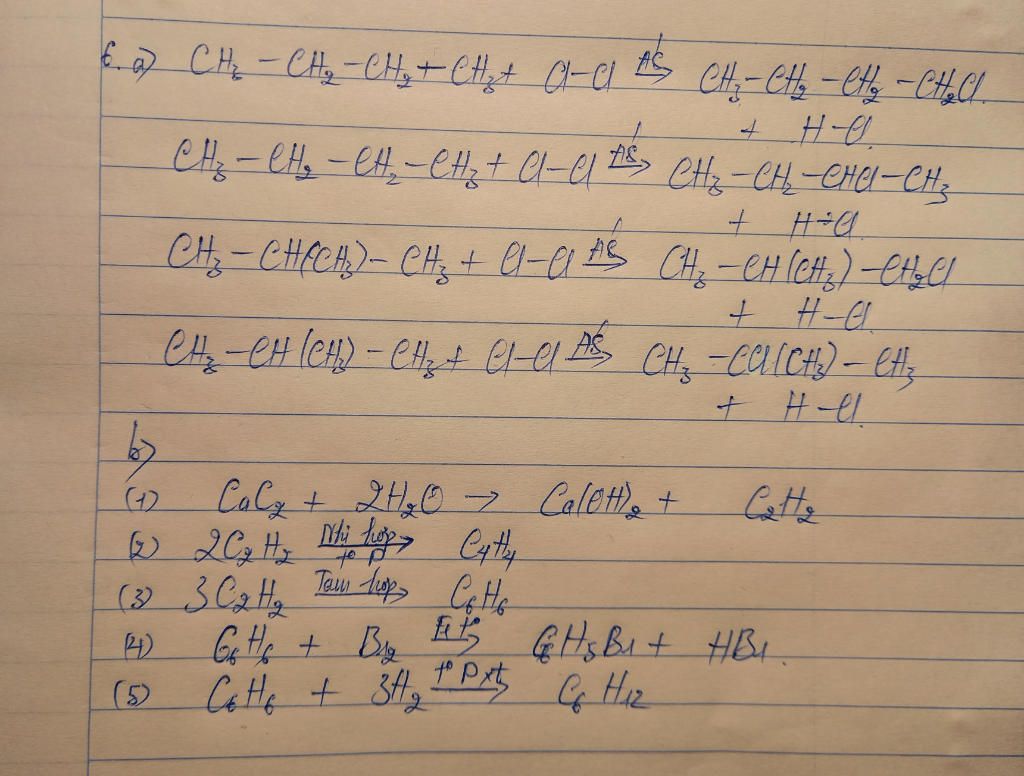 6. a) CH₃ – CH₂ – CH₂ + CH₃ + Cl–Cl AS→ CH₃ – CH₂ – CH₂ – CH₂Cl.
+ H–Cl.
CH₃ – CH₂ – CH₂ – CH₃ + Cl–Cl AS→ CH₃ – CH₂ – CHCl – CH₃
+ H–Cl.
CH₃ – CH(CH₃) – CH₃ + Cl–Cl AS→ CH₃ – CH(CH₃) – CH₂Cl
+ H–Cl.
CH₃ – CH(CH₃) – CH₃ + Cl–Cl AS→ CH₃ – CCl(CH₃) – CH₃
+ H–Cl.
b)
(1) CaC₂ + 2H₂O → Ca(OH)₂ + C₂H₂
(2) 2C₂H₂ Nhị hợp t° P→ C₄H₄
(3) 3C₂H₂ Tam hợp→ C₆H₆
(4) C₆H₆ + Br₂ Fe t°→ C₆H₅Br + HBr.
(5) C₆H₆ + 3H₂ t° P xt→ C₆H₁₂